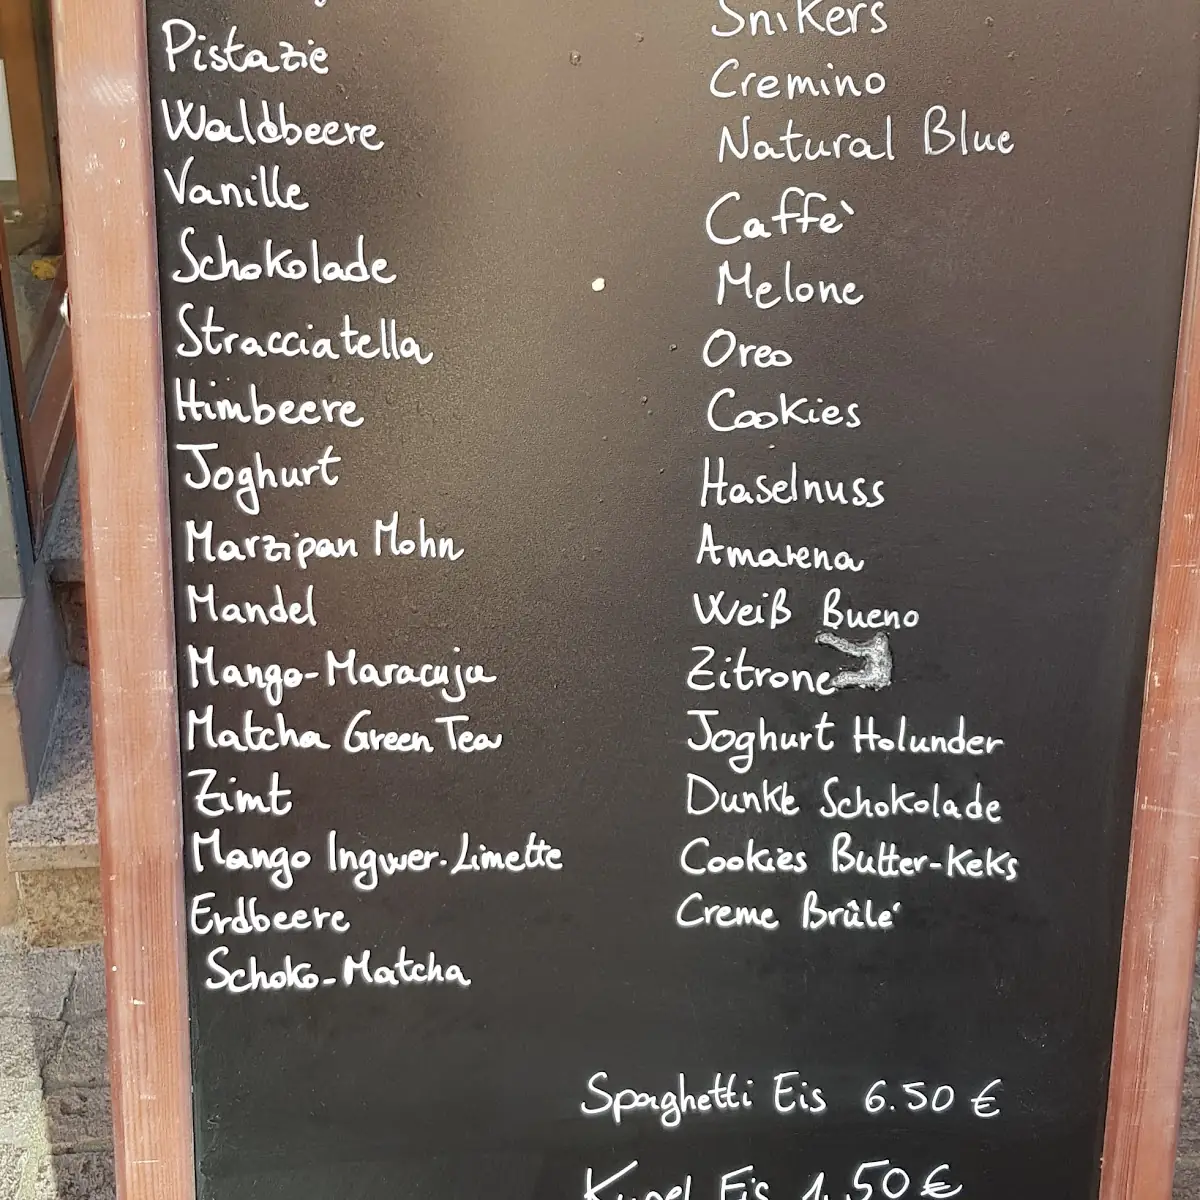 Pistazie
Waldbeere
Vanille
Schokolade
Stracciatella
Himbeere
Joghurt
Marzipan Mohn
Mandel
Mango-Maracuja
Matcha Green Tea
Zimt
Mango Ingwer-Limette
Erdbeere
Schoko-Matcha
Snikers
Cremino
Natural Blue
Caffè
Melone
Oreo
Cookies
Haselnuss
Amarena
Weiß Bueno
Zitrone
Joghurt Holunder
Dunkle Schokolade
Cookies Butter-Keks
Creme Brûlé
Spaghetti Eis 6.50 €
Kugel Eis 1.50 €